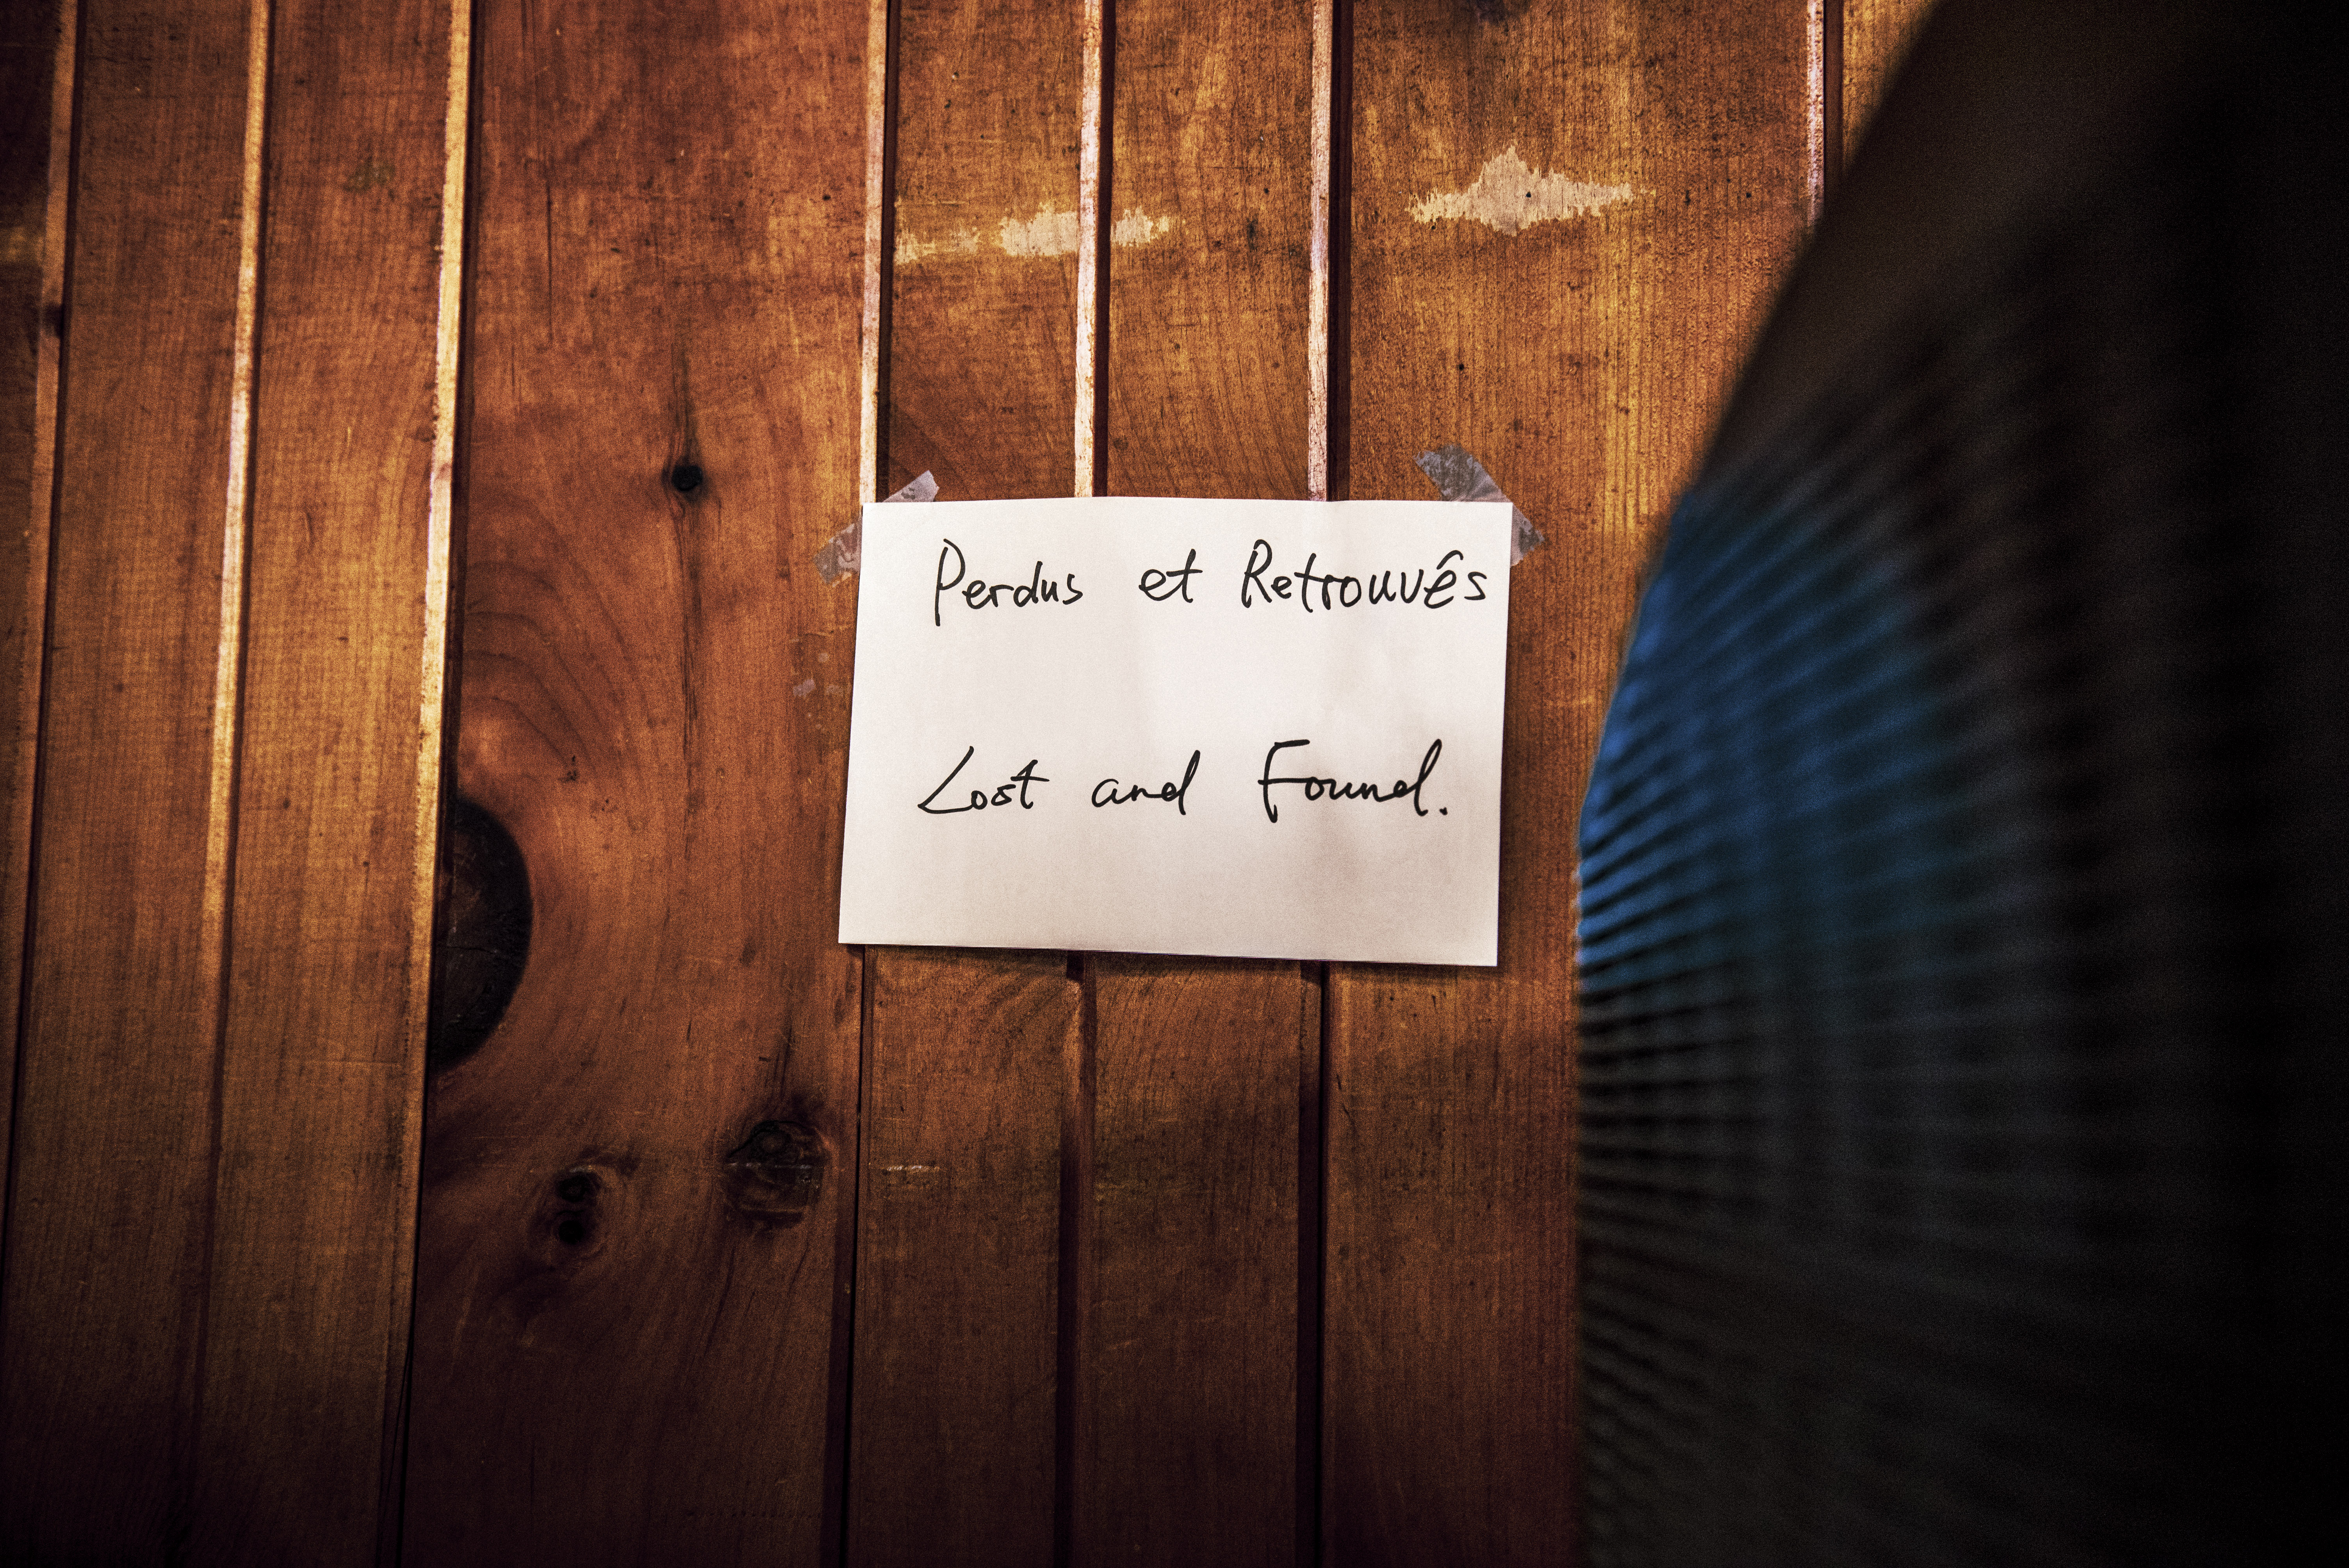 Perdus et Retrouvês
Lost and Found.